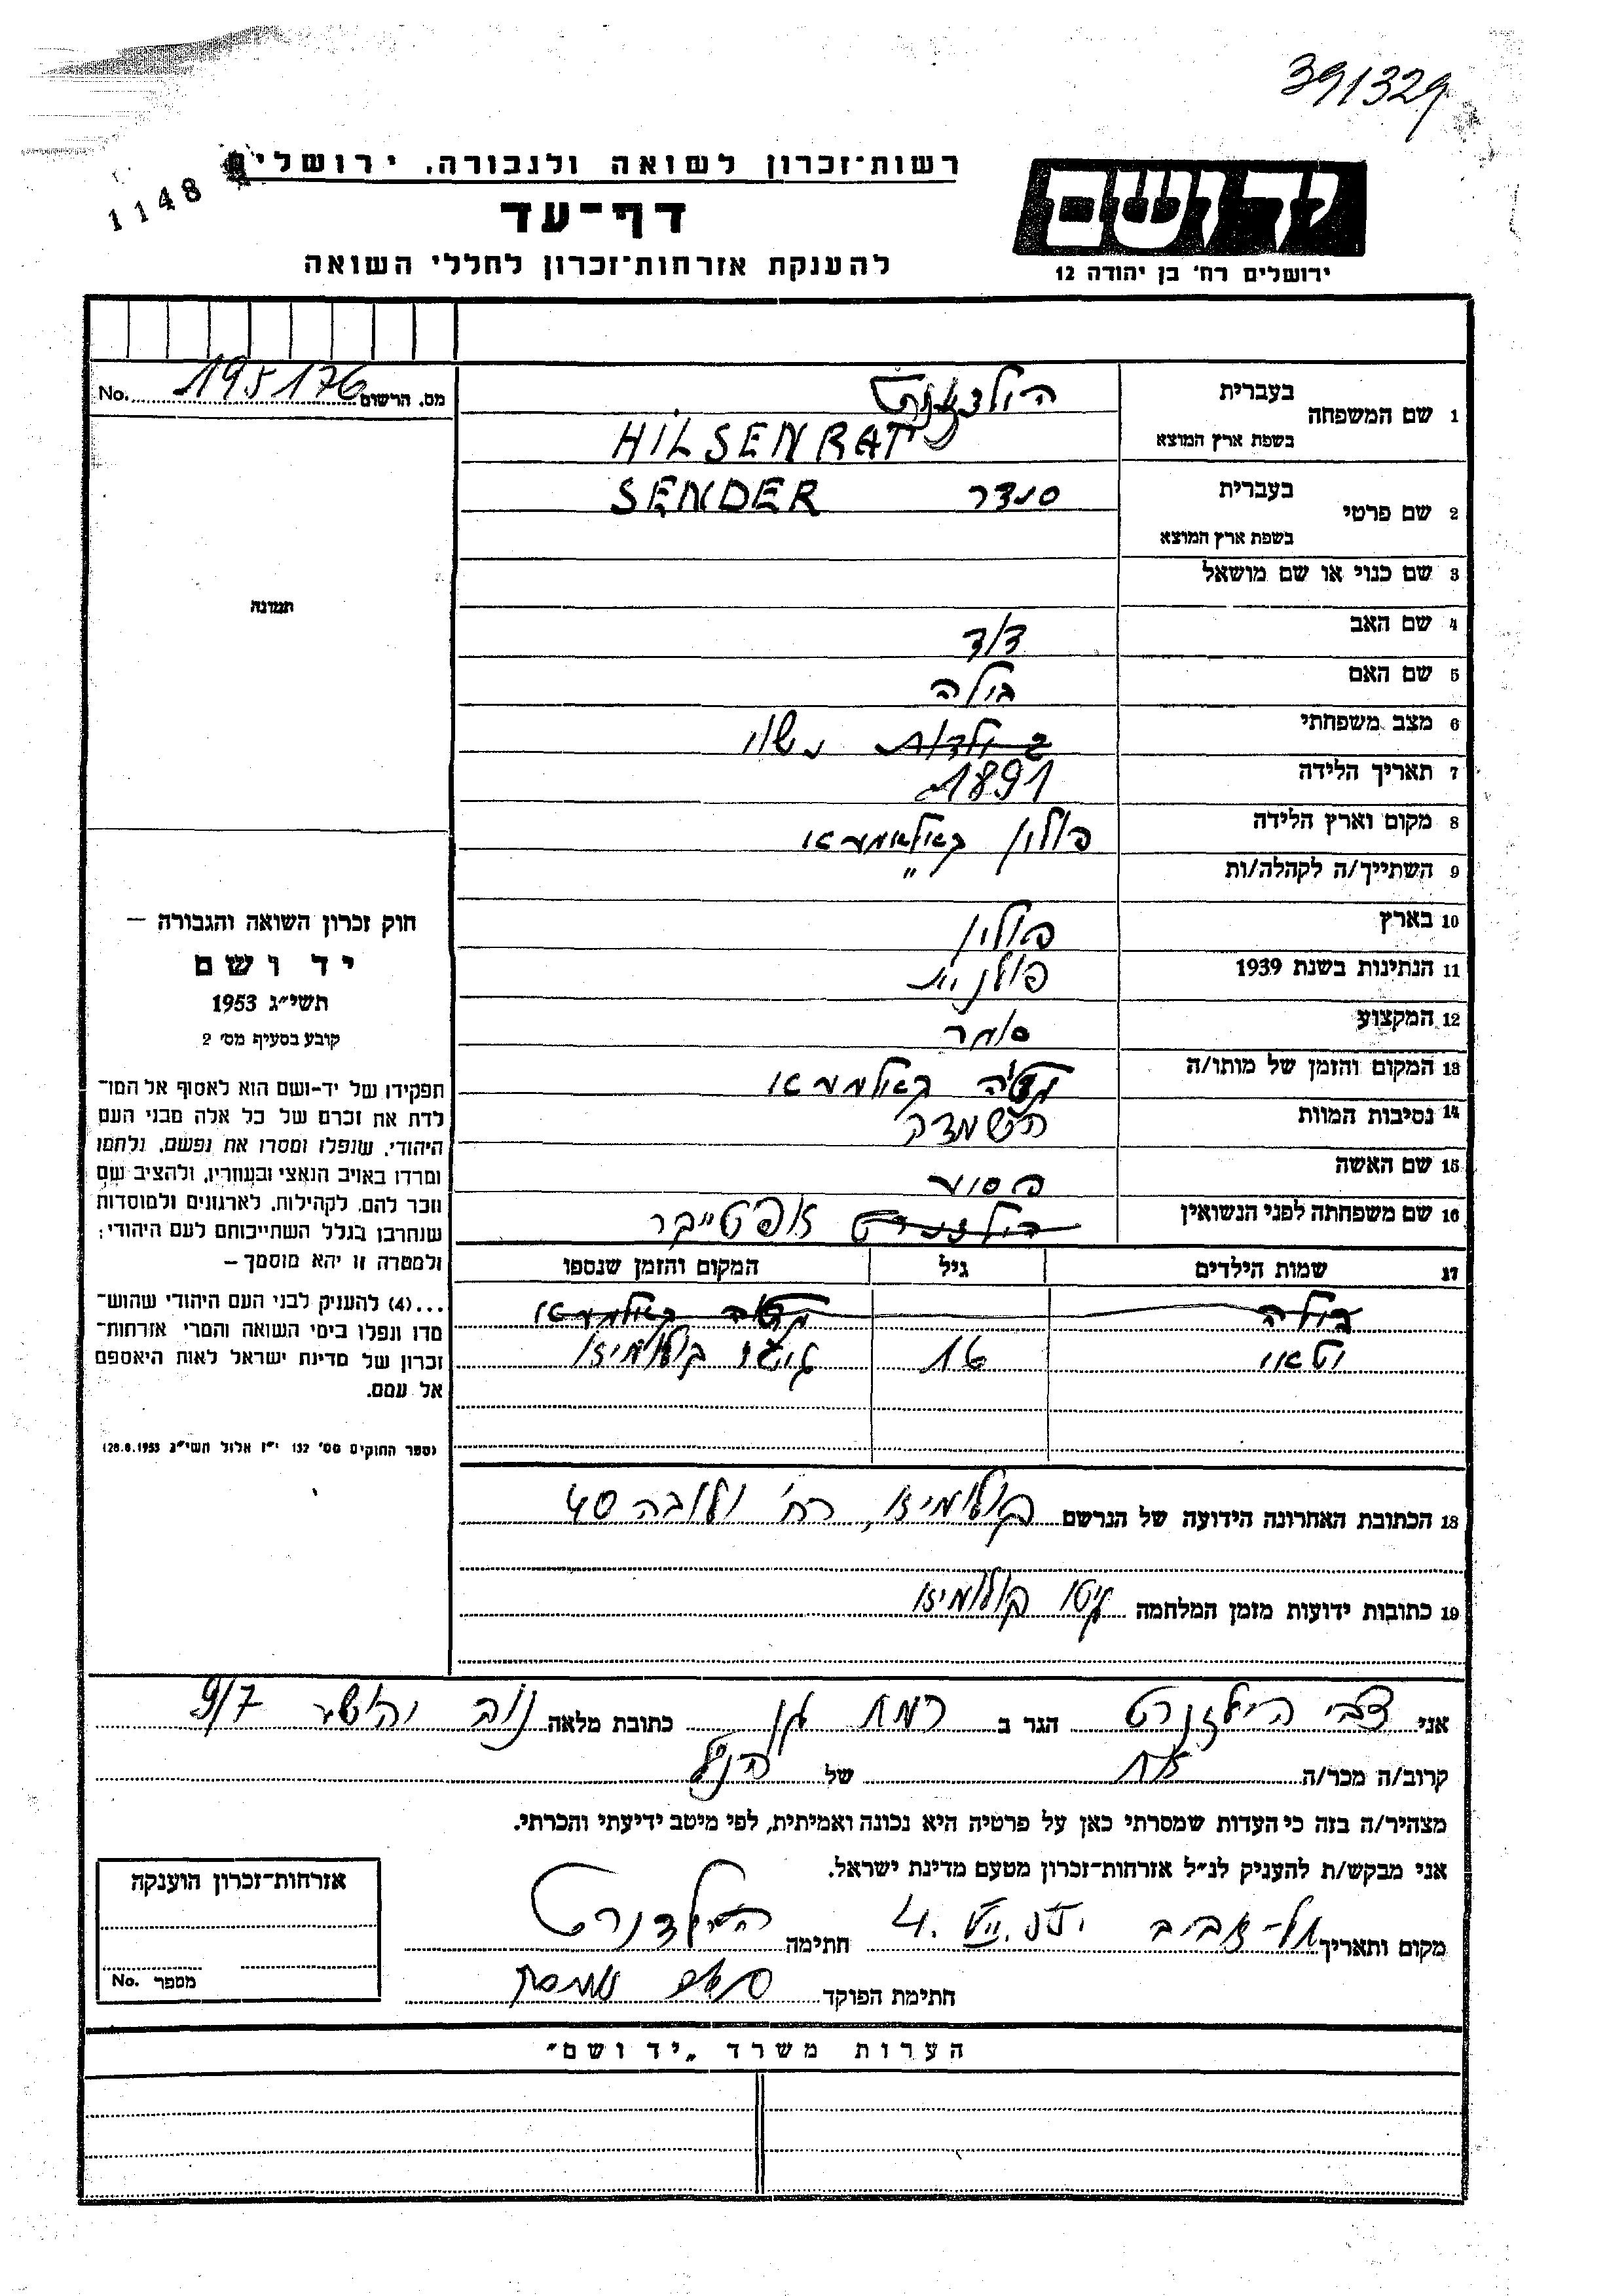 391329
רשות־זכרון לשואה ולגבורה, ירושלים
1148
דף־עד
להענקת אזרחות־זכרון לחללי השואה
יד ושם
ירושלים רח' בן יהודה 12
מס. הרשום 195176 No.
1 שם המשפחה
בעברית
בשפת ארץ המוצא HILSENRAT
2 שם פרטי
בעברית סנדר SENDER
בשפת ארץ המוצא
3 שם כנוי או שם מושאל
4 שם האב דוד
5 שם האם בילה
6 מצב משפחתי נשוי
7 תאריך הלידה 1891
8 מקום וארץ הלידה פולין
9 השתייך/ה לקהלה/ות "
10 בארץ פולין
11 הנתינות בשנת 1939 פולנית
12 המקצוע סוחר
13 המקום והזמן של מותו/ה
14 נסיבות המוות השמדה
15 שם האשה
16 שם משפחתה לפני הנשואין
17 שמות הילדים גיל המקום והזמן שנספו
בילה
16 קולומיזו
18 הכתובת האחרונה הידועה של הנרשם קולומיזו, רח' 40
19 כתובות ידועות מזמן המלחמה גיטו קולומיזו
תמונה
חוק זכרון השואה והגבורה —
יד ושם
תשי״ג 1953
קובע בסעיף מס׳ 2
תפקידו של יד-ושם הוא לאסוף אל המו־
לדת את זכרם של כל אלה מבני העם
היהודי, שנפלו ומסרו את נפשם, נלחמו
ומרדו באויב הנאצי ובעוזריו, ולהציב שם
וזכר להם, לקהילות, לארגונים ולמוסדות
שנחרבו בגלל השתייכותם לעם היהודי;
ולמטרה זו יהא מוסמך —
...(4) להעניק לבני העם היהודי שהוש־
מדו ונפלו בימי השואה והמרי אזרחות־
זכרון של מדינת ישראל לאות היאספם
אל עמם.
(ספר החוקים מס׳ 132 י״ז אלול תשי״ג 28.8.1953)
אני צבי הילזנרט הגר ב רמת גן כתובת מלאה 9/7
קרוב/ה מכר/ה אח של הנ"ל
מצהיר/ה בזה כי העדות שמסרתי כאן על פרטיה היא נכונה ואמיתית, לפי מיטב ידיעתי והכרתי.
אני מבקש/ת להעניק לנ״ל אזרחות־זכרון מטעם מדינת ישראל.
מקום ותאריך תל-אביב חתימה הילזנרט
חתימת הפוקד
אזרחות־זכרון הוענקה
מספר No.
הערות משרד „יד ושם״